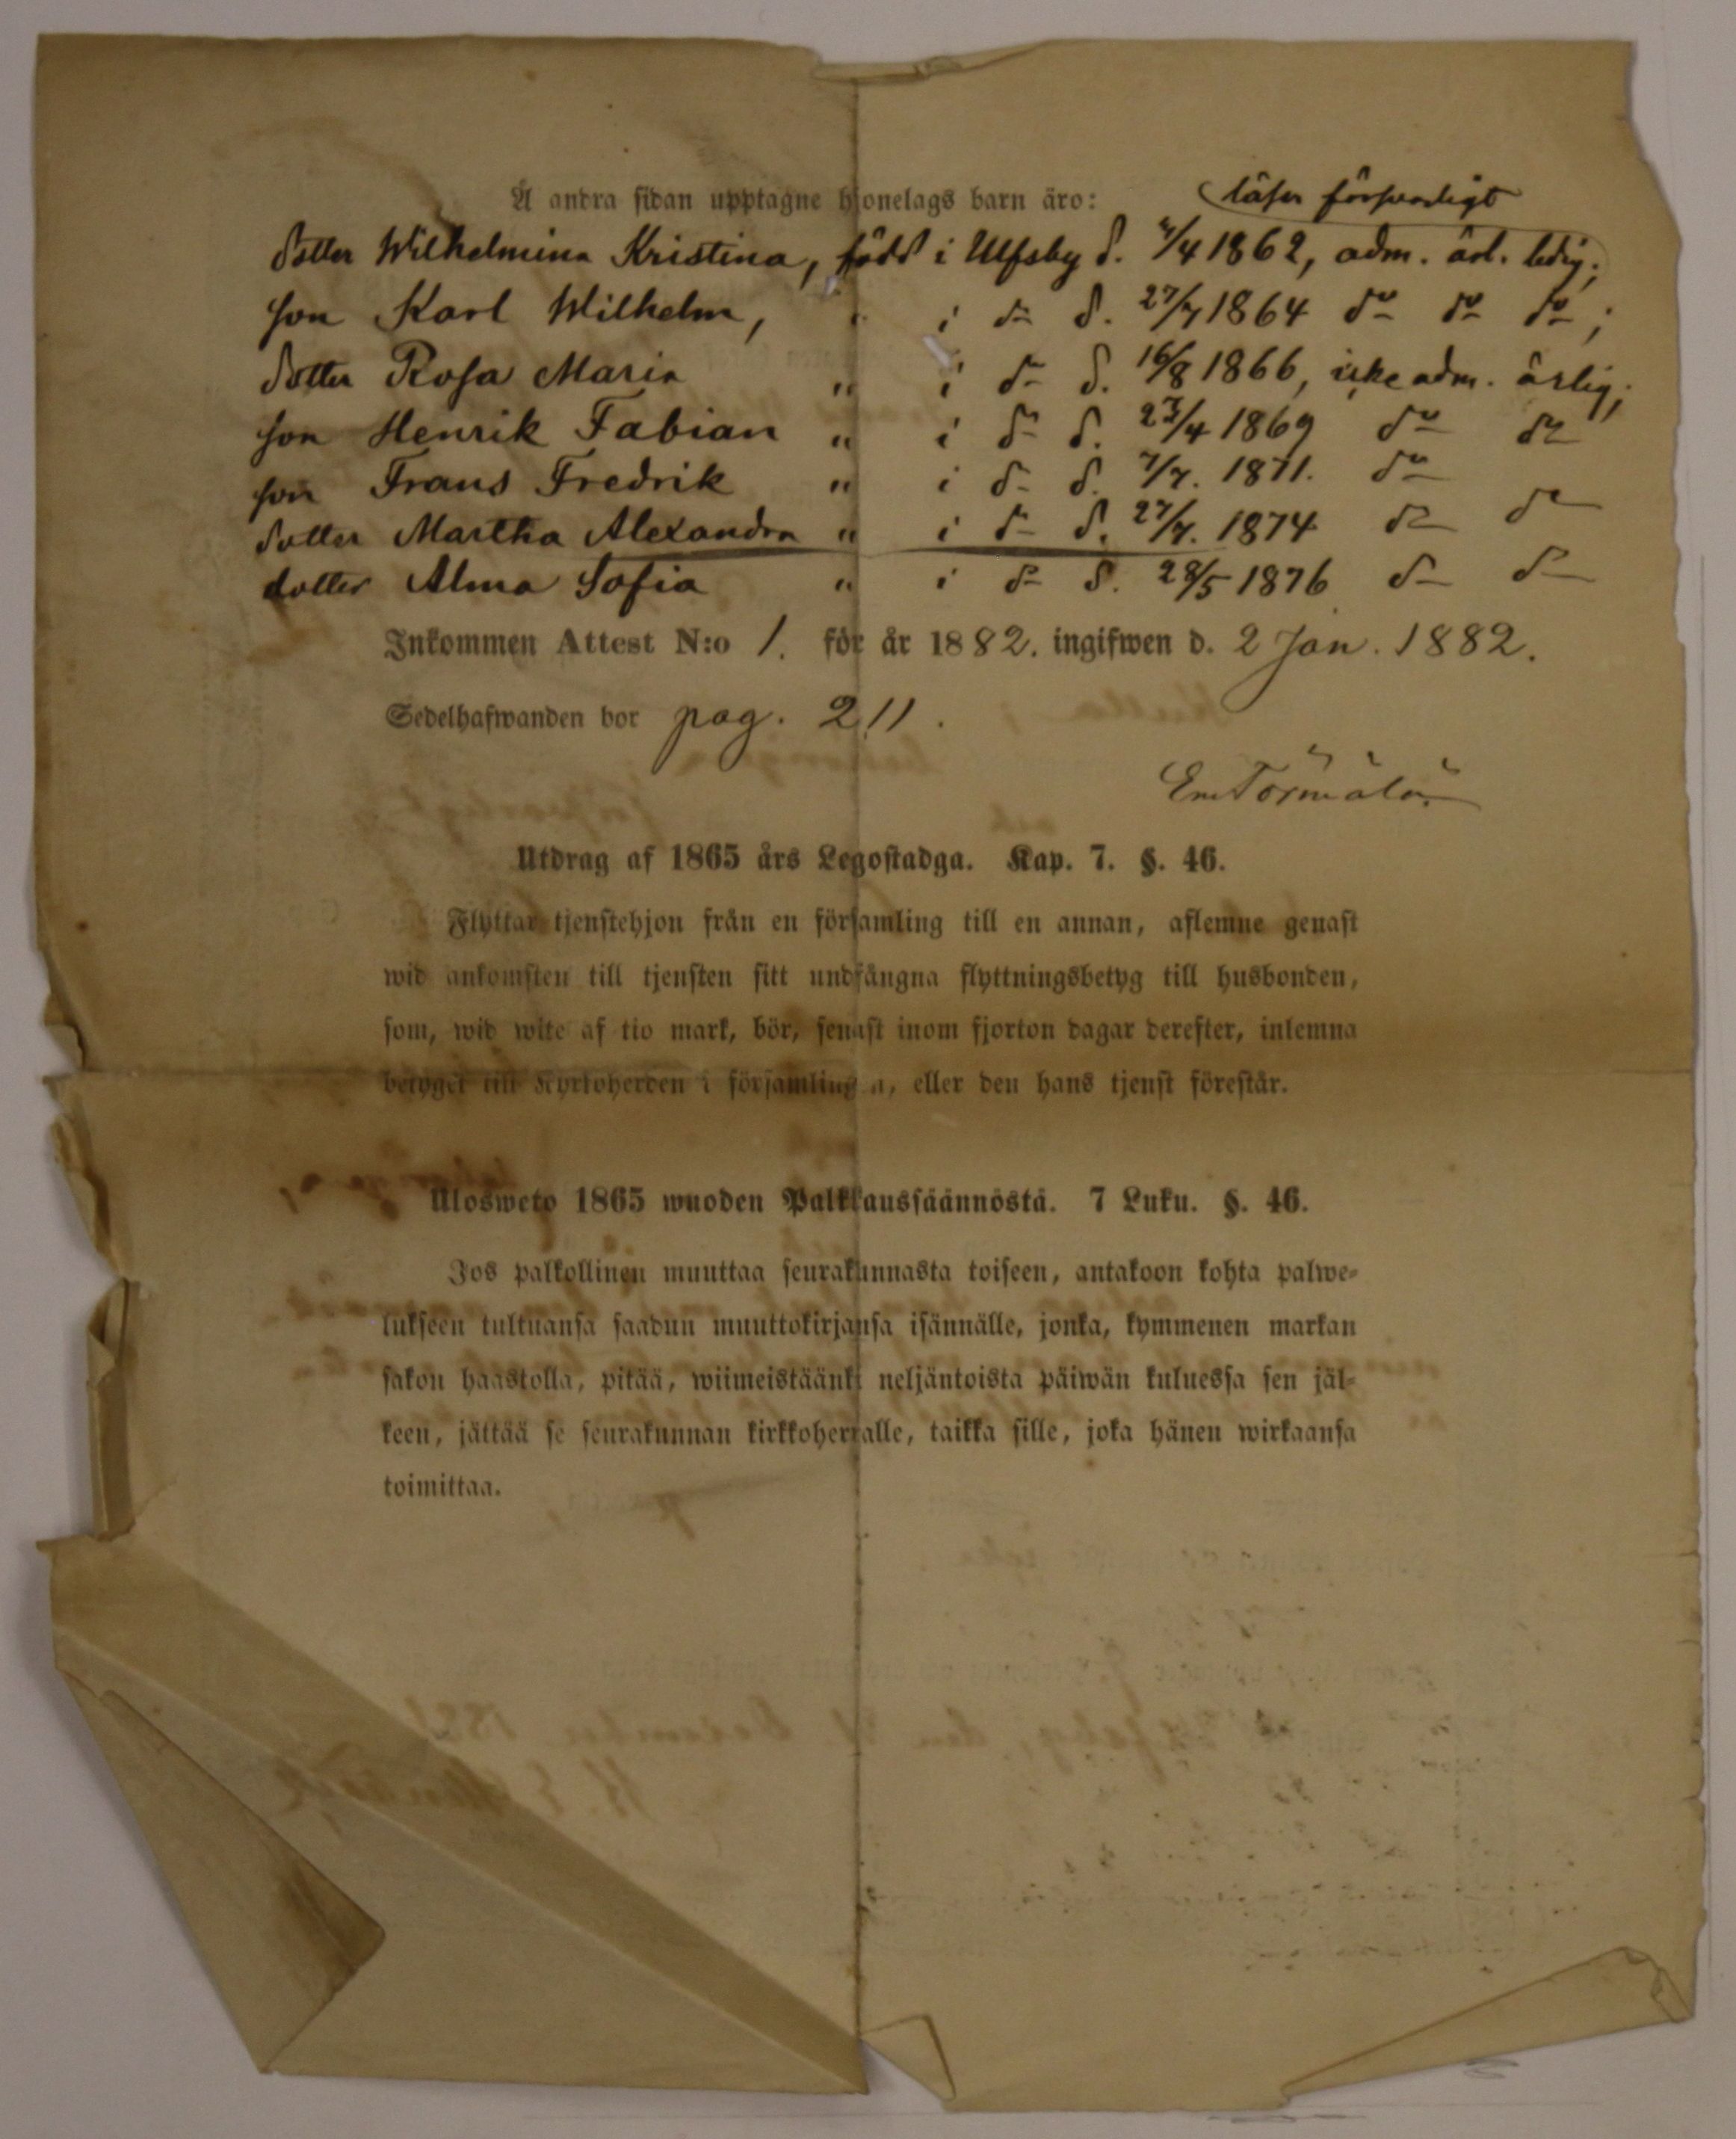 Å andra sidan upptagne hjonelags barn äro:
läser försvarligt
dotter Wilhelmina Kristina, född i Ulfsby d. /4 1862, adm. ärl. ledig;
son Karl Wilhelm, " i do d. 27/7 1864 do do do;
dotter Rosa Maria " i do d. 16/8 1866, icke adm. ärlig;
son Henrik Fabian " i do d. 23/4 1869 do do
son Frans Fredrik " i do d. 7/7. 1871. do
dotter Martha Alexandra " i do d. 27/7. 1874 do do
dotter Alma Sofia " i do d. 28/5 1876 do do
Inkommen Attest N:o 1. för år 1882. ingifwen d. 2 Jan. 1882.
Sedelhafwanden bor pag. 211.
Em Törmälä
Utdrag af 1865 års Legostadga. Kap. 7. §. 46.
Flyttar tjenstehjon från en församling till en annan, aflemne genast
wid ankomsten till tjensten sitt undfångna flyttningsbetyg till husbonden,
som, wid wite af tio mark, bör, senast inom fjorton dagar derefter, inlemna
betyget till Kyrkoherden i församlingen, eller den hans tjenst förestår.
Ulosweto 1865 wuoden Palkkaussäännöstä. 7 Luku. §. 46.
Jos palkollinen muuttaa seurakunnasta toiseen, antakoon kohta palwe-
lukseen tultuansa saadun muuttokirjansa isännälle, jonka, kymmenen markan
sakon haastolla, pitää, wiimeistäänki neljäntoista päiwän kuluessa sen jäl-
keen, jättää se seurakunnan kirkkoherralle, taikka sille, joka hänen wirkaansa
toimittaa.